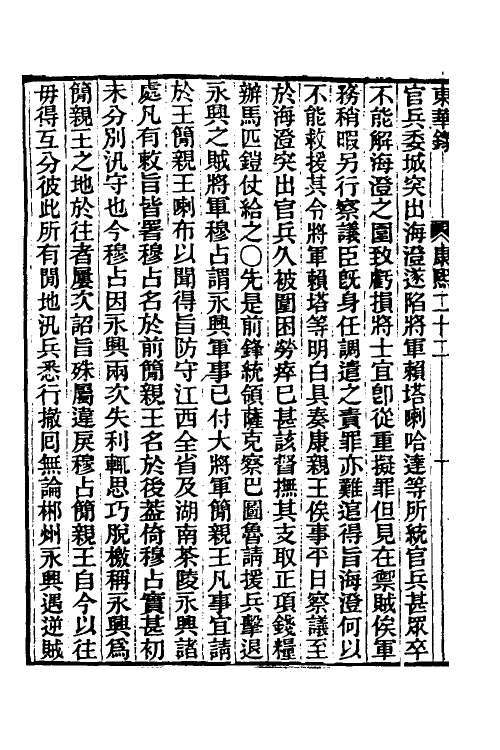 東華錄 康熙二十二 十
官兵委城突出海澄遂陷將軍賴塔喇哈達等所統官兵甚眾卒
不能解海澄之圍致虧損將士宜卽從重擬罪但見在禦賊俟軍
務稍暇另行察議臣旣身任調遣之責罪亦難逭得旨海澄何以
不能救援其令將軍賴塔等明白具奏康親王俟事平日察議至
於海澄突出官兵久被圍困勞瘁已甚該督撫其支取正項錢糧
辦馬匹鎧仗給之〇先是前鋒統領薩克察巴圖魯請援兵擊退
永興之賊將軍穆占謂永興軍事已付大將軍簡親王凡事宜請
於王簡親王喇布以聞得旨防守江西全省及湖南茶陵永興諸
處凡有敕旨皆署穆占名於前簡親王名於後蓋倚穆占實甚初
未分別汛守也今穆占因永興兩次失利輒思巧脫檄稱永興為
簡親王之地於往者屢次詔旨殊屬違戾穆占簡親王自今以往
毋得互分彼此所有閒地汛兵悉行撤回無論郴州永興遇逆賊